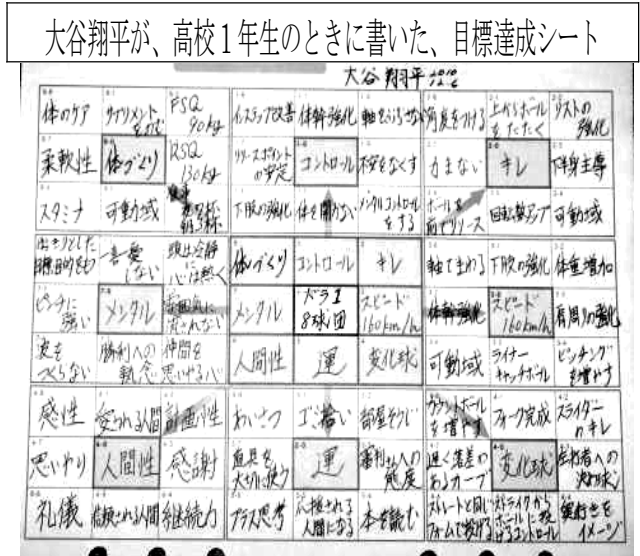 大谷翔平が、高校1年生のときに書いた、目標達成シート
大谷 翔平
体のケア
サプリメント
をのむ
FSQ
90kg
インステップ改善
体幹強化
軸をぶらさない
角度をつける
上からボール
をたたく
リストの
強化
柔軟性
体づくり
RSQ
130kg
リリースポイント
の安定
コントロール
不安をなくす
力まない
キレ
下半身主導
スタミナ
可動域
食事
夜7杯
朝3杯
下肢の強化
体を開かない
メンタルコントロール
をする
ボールを
前でリリース
回転数アップ
可動域
はっきりとした
目標、目的をもつ
一喜一憂
しない
頭は冷静に
心は熱く
体づくり
コントロール
キレ
軸でまわる
下肢の強化
体重増加
ピンチに
強い
メンタル
雰囲気に
流されない
メンタル
ドラ1
8球団
スピード
160km/h
体幹強化
スピード
160km/h
肩周りの強化
波を
つくらない
勝利への
執念
仲間を
思いやる心
人間性
運
変化球
可動域
ライナー
キャッチボール
ピッチング
を増やす
感性
愛される人間
計画性
あいさつ
ゴミ拾い
部屋そうじ
カウントボール
を増やす
フォーク完成
スライダー
のキレ
思いやり
人間性
感謝
道具を
大切に使う
運
審判さんへの
態度
遅く落差の
あるカーブ
変化球
左打者への
決め球
礼儀
信頼される人間
継続力
プラス思考
応援される
人間になる
本を読む
ストレートと同じ
フォームで投げる
ストライクから
ボールに投
げるコントロール
奥行きを
イメージ